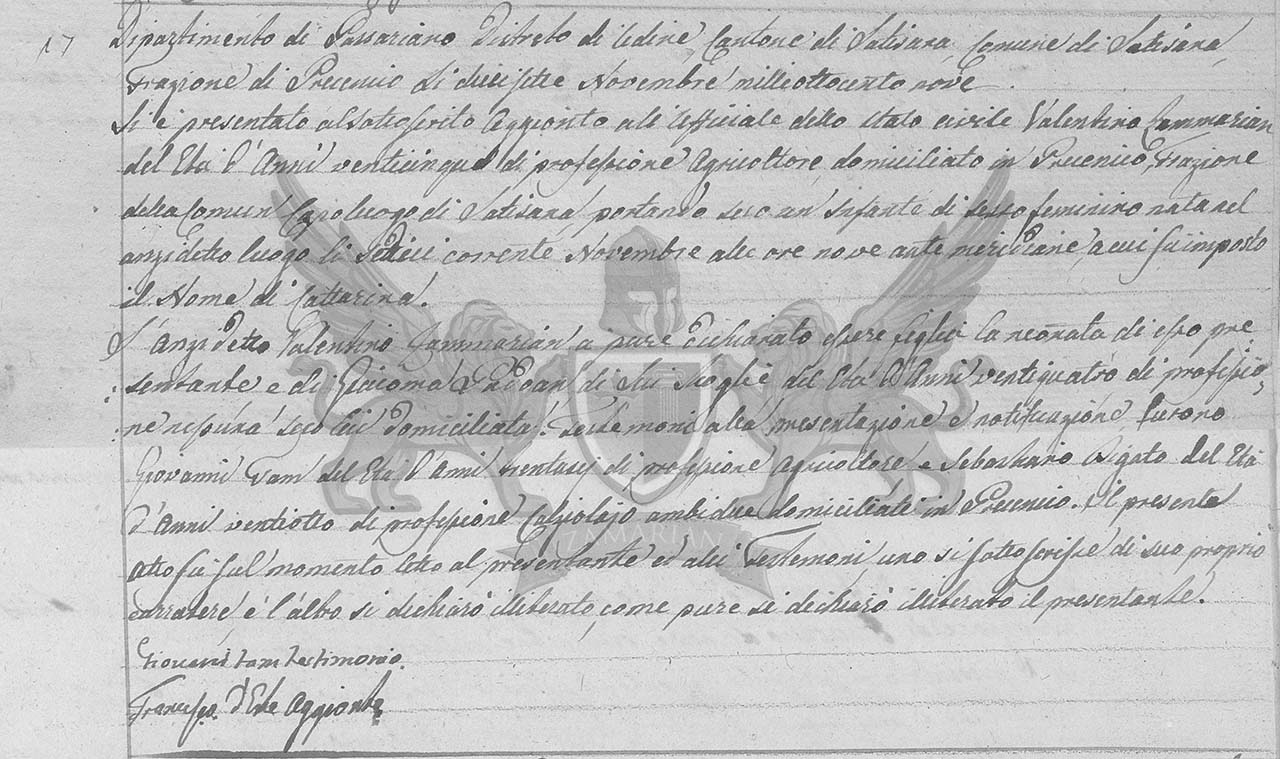 17
Dipartimento di Passariano Distreto di Udine, Cantone di Latisana, Comune di Latisana,
Frazione di Precenico li diciisette Novembre milleottocento nove.
Si è presentato al sotoscrito Aggionto all'Ufficiale dello stato civile Valentino Zammarian
del Età d'Anni venticinque di professione Agricoltore, domiciliato in Precenico, Frazione
della Comun Capoluogo di Latisana portando seco un'infante di sesso feminino nata nel
anzidetto luogo li sedici corrente Novembre alle ore nove ante meridiane, a cui fu imposto
il Nome di Cattarina.
L'Anzidetto Valentino Zammarian a pure dichiarato essere figlia la neonata di esso pre=
=sentante e di Giacoma di lui Moglie del Età d'Anni ventiquatro di professio=
ne seco lui Domiciliata. Testemoni alla presentazione e notificazione furono
Giovanni Tam del Età d'Anni trentasej di professione Agricoltore e Sebastiano Bigato del Età
d'Anni ventiotto di professione Calzolajo ambidue domiciliati in Precenico. Il presente
Atto fu sul momento letto al presentante ed alli Testemoni uno si sottoscrisse di suo proprio
carratere e l'altro si dichiarò illiterato, come pure si dichiarò illiterato il presentante.
ZAMARIAN
Giovani tam testimonio.
Francesco d'Este Aggionto